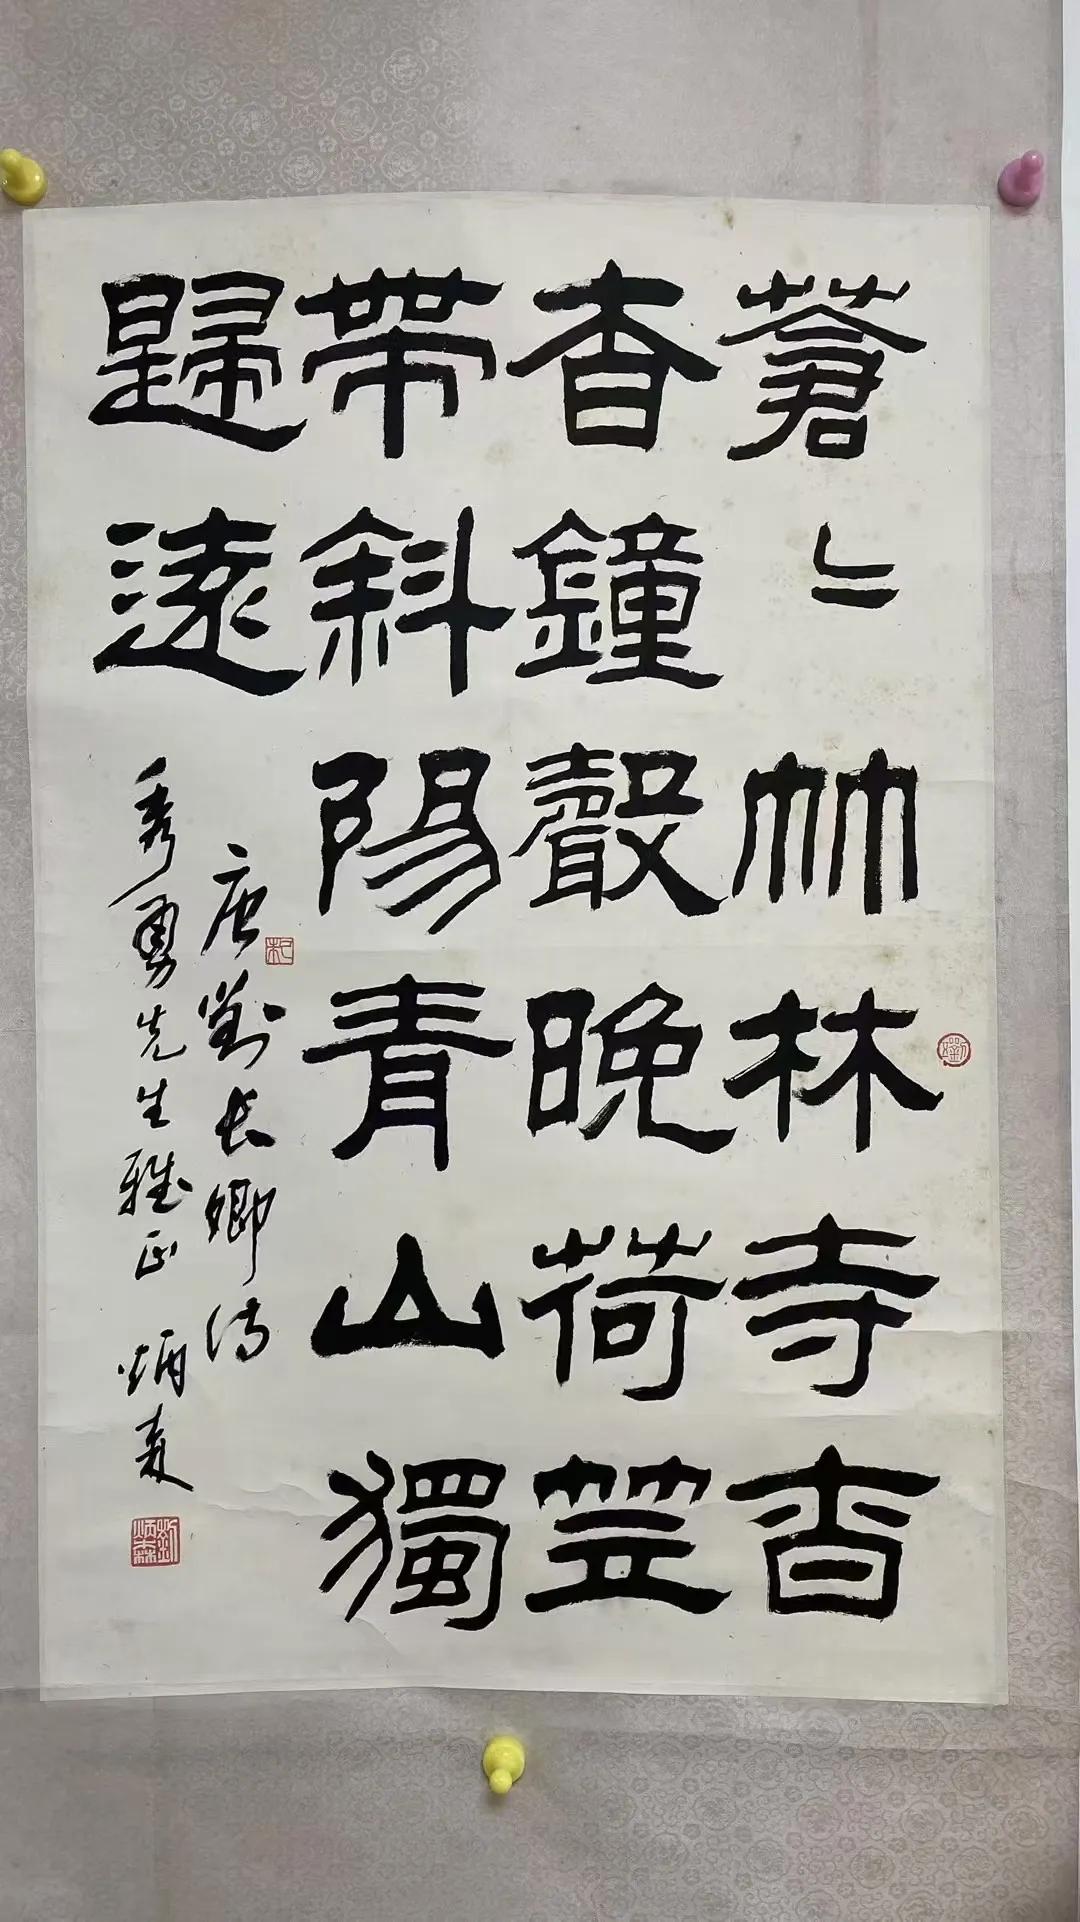 蒼〻竹林寺杳
杳鐘聲晚荷笠
帶斜陽青山獨
歸遠
唐劉長卿詩
秀勇先生雅正 炳森
劉炳森
劉